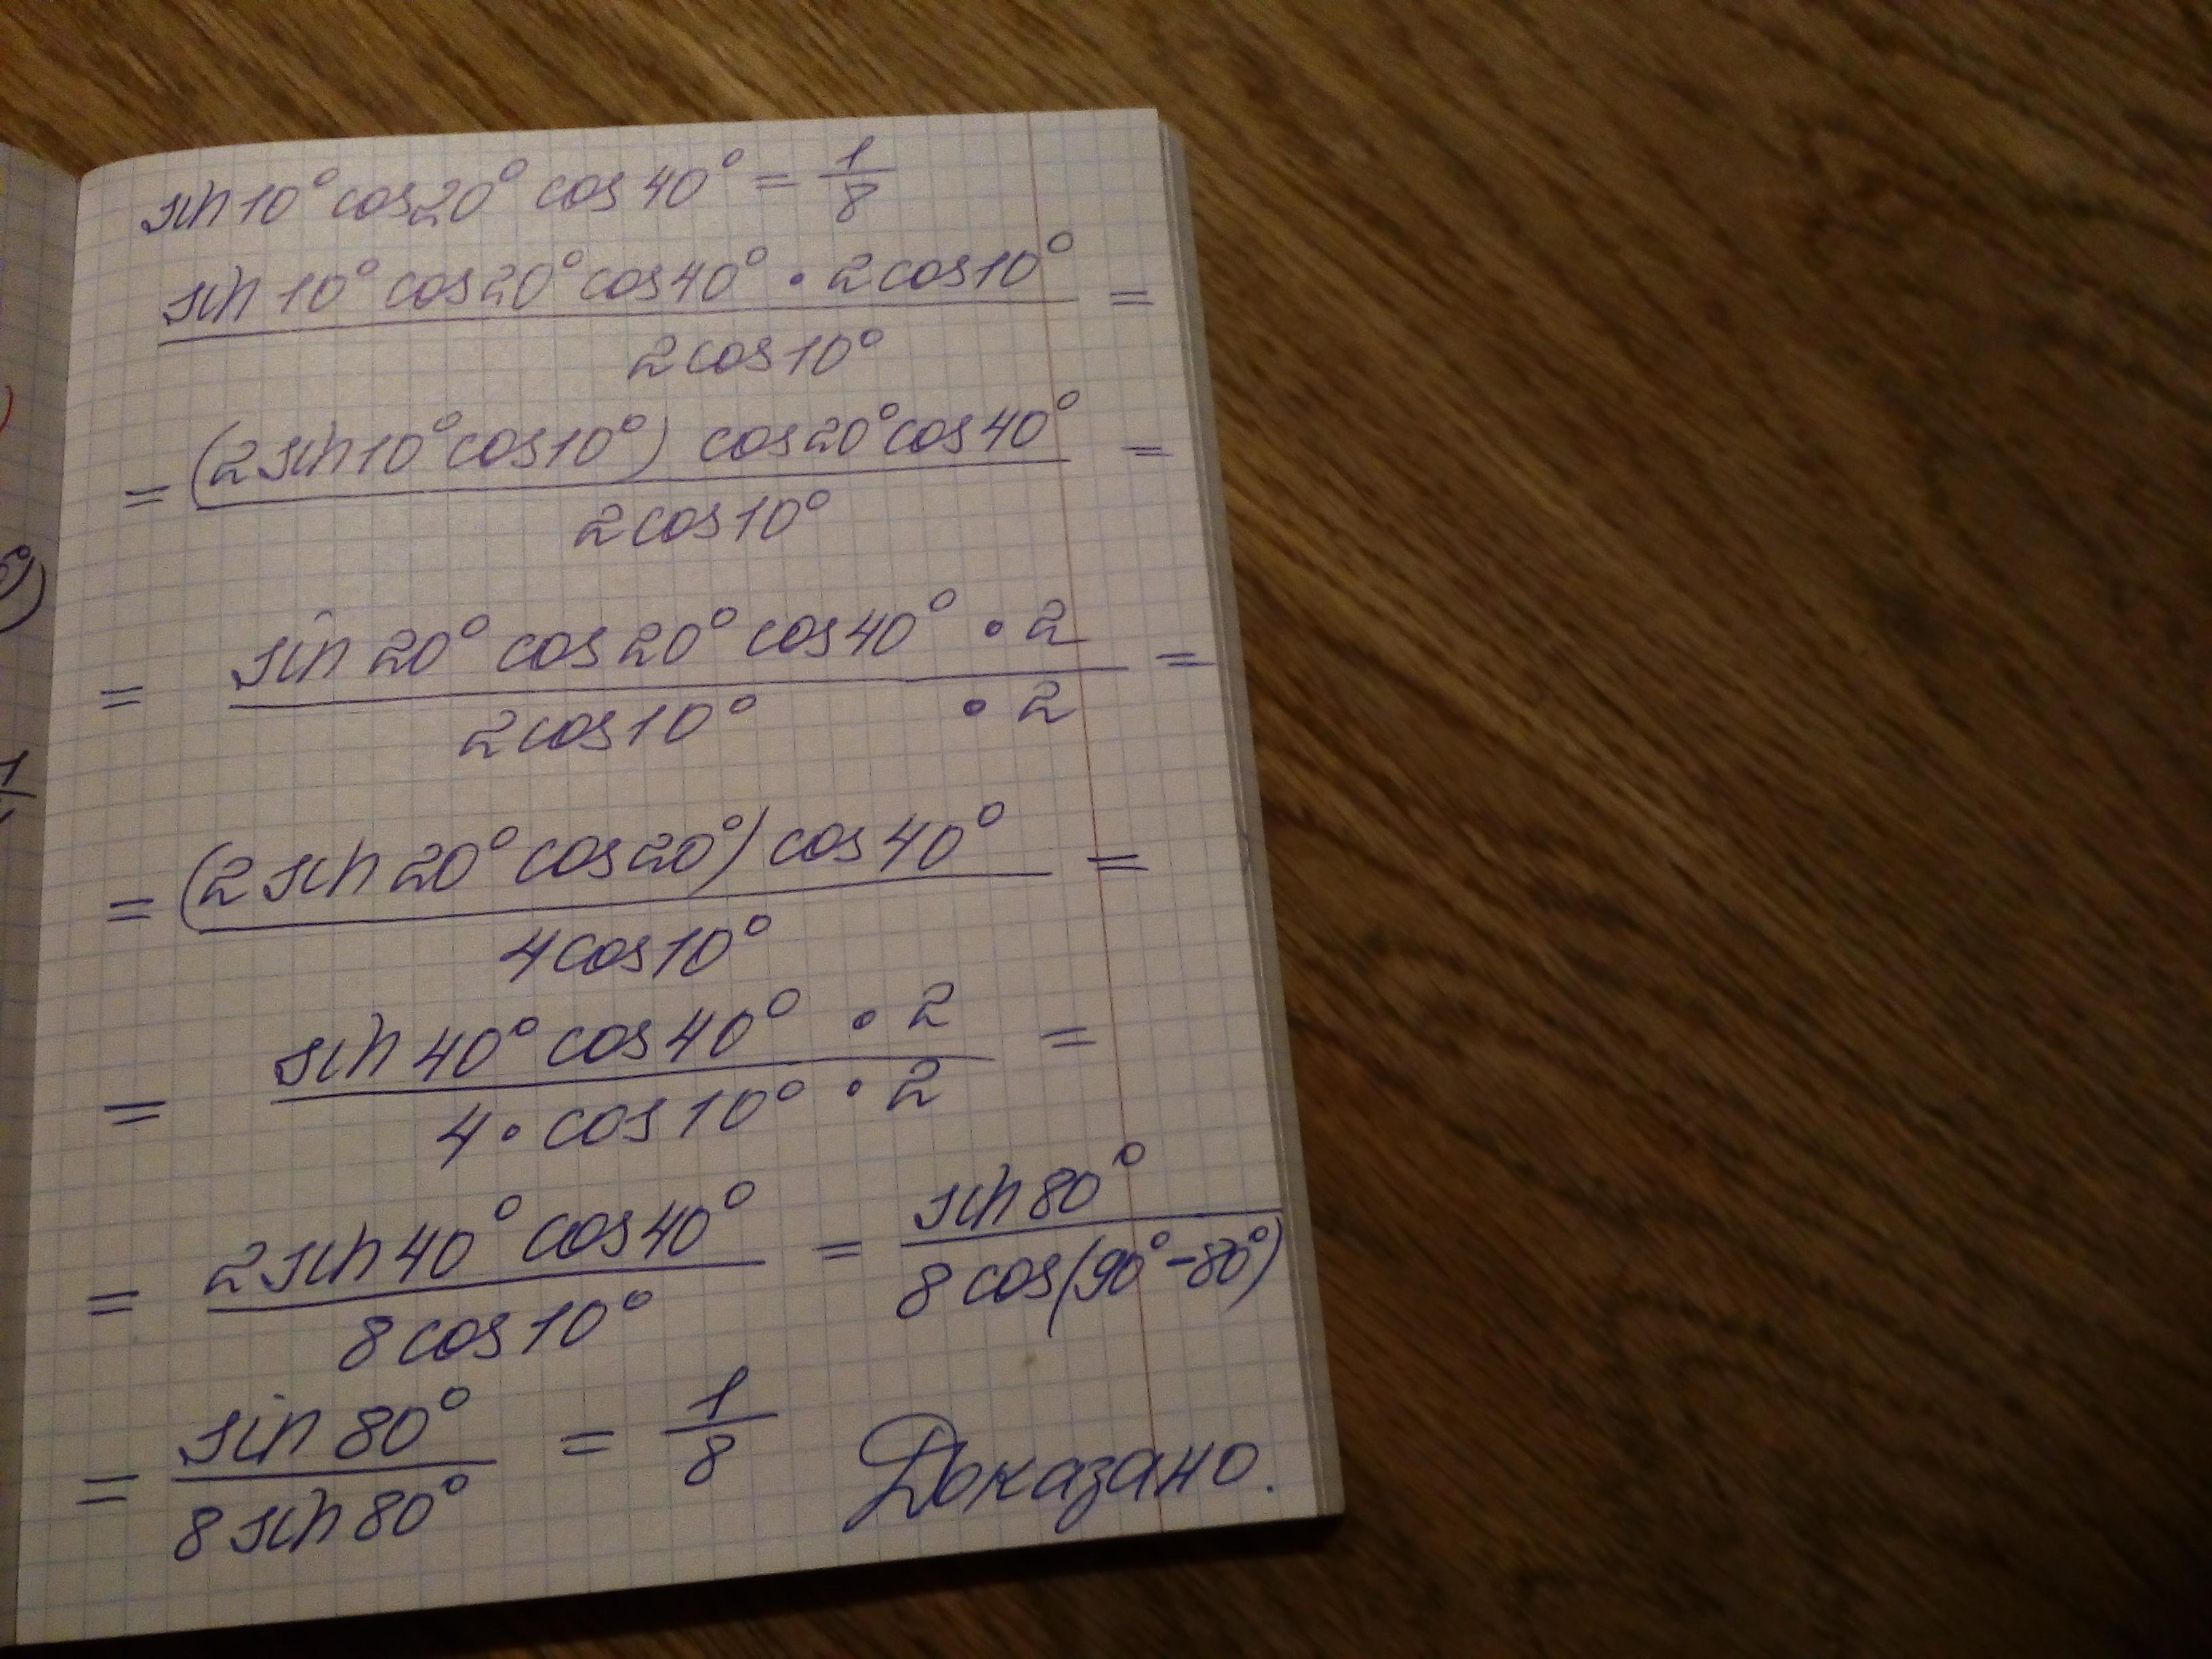 sin 10° cos 20° cos 40° = 1/8
sin 10° cos 20° cos 40° • 2 cos 10° =
2 cos 10°
= (2 sin 10° cos 10°) cos 20° cos 40° =
2 cos 10°
= sin 20° cos 20° cos 40° • 2 =
2 cos 10° • 2
= (2 sin 20° cos 20°) cos 40° =
4 cos 10°
= sin 40° cos 40° • 2 =
4 • cos 10° • 2
= 2 sin 40° cos 40° = sin 80°
8 cos 10° 8 cos (90° - 80°)
= sin 80° = 1/8 Доказано.
8 sin 80°